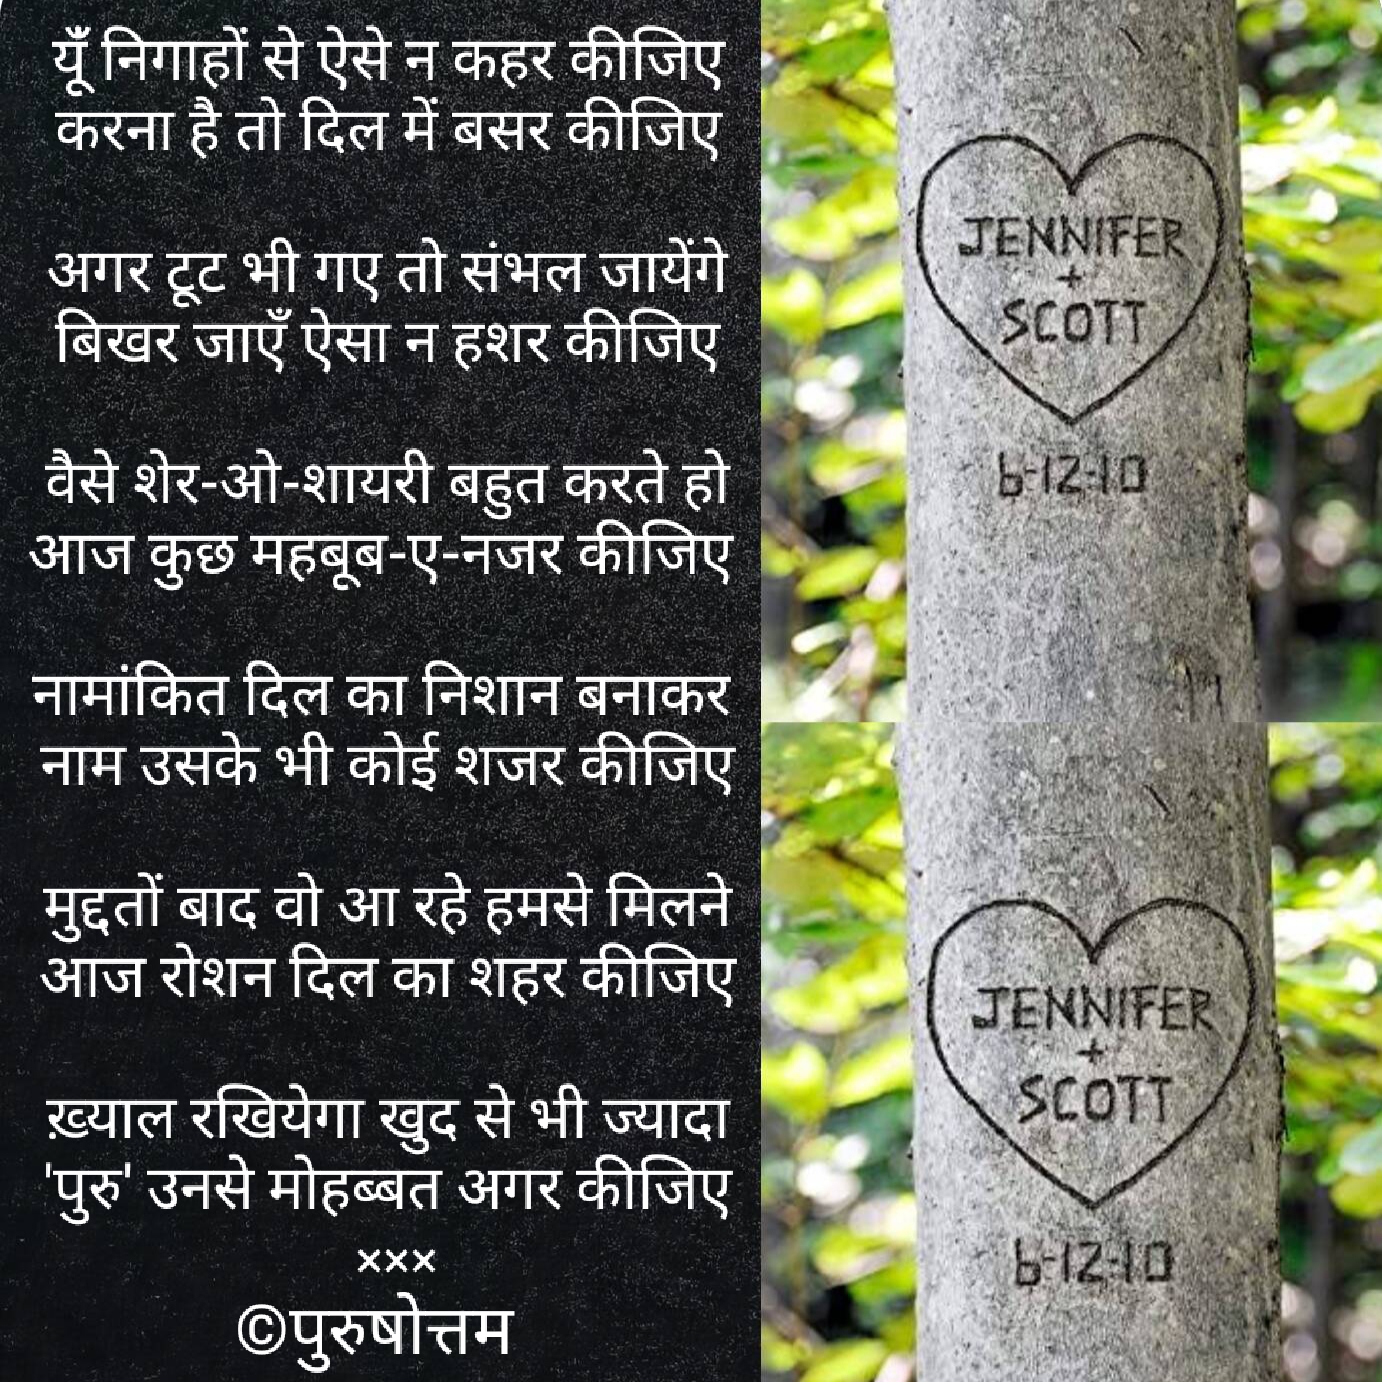 यूँ निगाहों से ऐसे न कहर कीजिए
करना है तो दिल में बसर कीजिए
अगर टूट भी गए तो संभल जायेंगे
बिखर जाएँ ऐसा न हशर कीजिए
वैसे शेर-ओ-शायरी बहुत करते हो
आज कुछ महबूब-ए-नजर कीजिए
नामांकित दिल का निशान बनाकर
नाम उसके भी कोई शजर कीजिए
मुद्दतों बाद वो आ रहे हमसे मिलने
आज रोशन दिल का शहर कीजिए
ख़्याल रखियेगा खुद से भी ज्यादा
'पुरु' उनसे मोहब्बत अगर कीजिए
×××
©पुरुषोत्तम
JENNIFER
+
SCOTT
6-12-10
JENNIFER
+
SCOTT
6-12-10